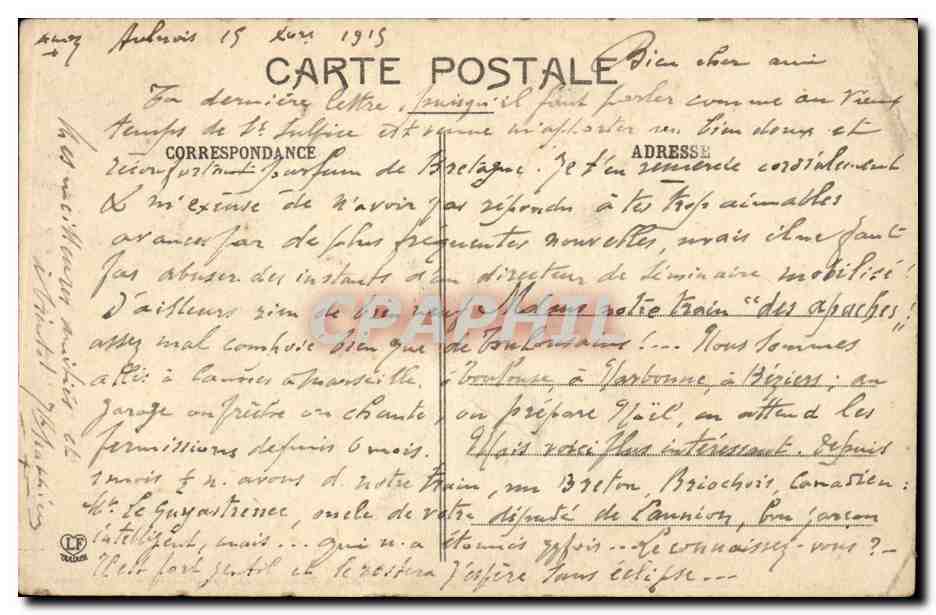 Aulnois 15 Xbre 1915
CARTE POSTALE Bien cher ami
Ta dernière lettre, puisqu'il faut parler comme au vieux
temps de St Sulpice est venue m'apporter un bien doux et
CORRESPONDANCE ADRESSE
réconfortant parfum de Bretagne. Je t'en remercie cordialement
& m'excuse de n'avoir pas répondu à tes trop aimables
avances par de plus fréquentes nouvelles, mais il ne faut
pas abuser des instants d'un directeur de séminaire mobilisé!
D'ailleurs rien de bien neuf dans notre train "des apaches"!
assez mal composé bien que de Toulousains!... Nous sommes
allés à Cannes à Marseille, à Toulouse, à Narbonne, à Béziers; au
garage on prêche on chante, on prépare Noël, on attend les
permissions depuis 6 mois. Mais voici plus intéressant. Depuis
1 mois ½ n. avons d. notre train, un Breton, Briochois, Canadien:
Mr Le Guyastrennec, oncle de votre député de Lannion, bon garçon
intelligent, mais... qui n. a étonnés qqfois... Le connaissez-vous?-
Il est fort gentil et le restera j'espère sans éclipse...
Mes meilleures amitiés et
à bientôt
CPAPHIL
LF